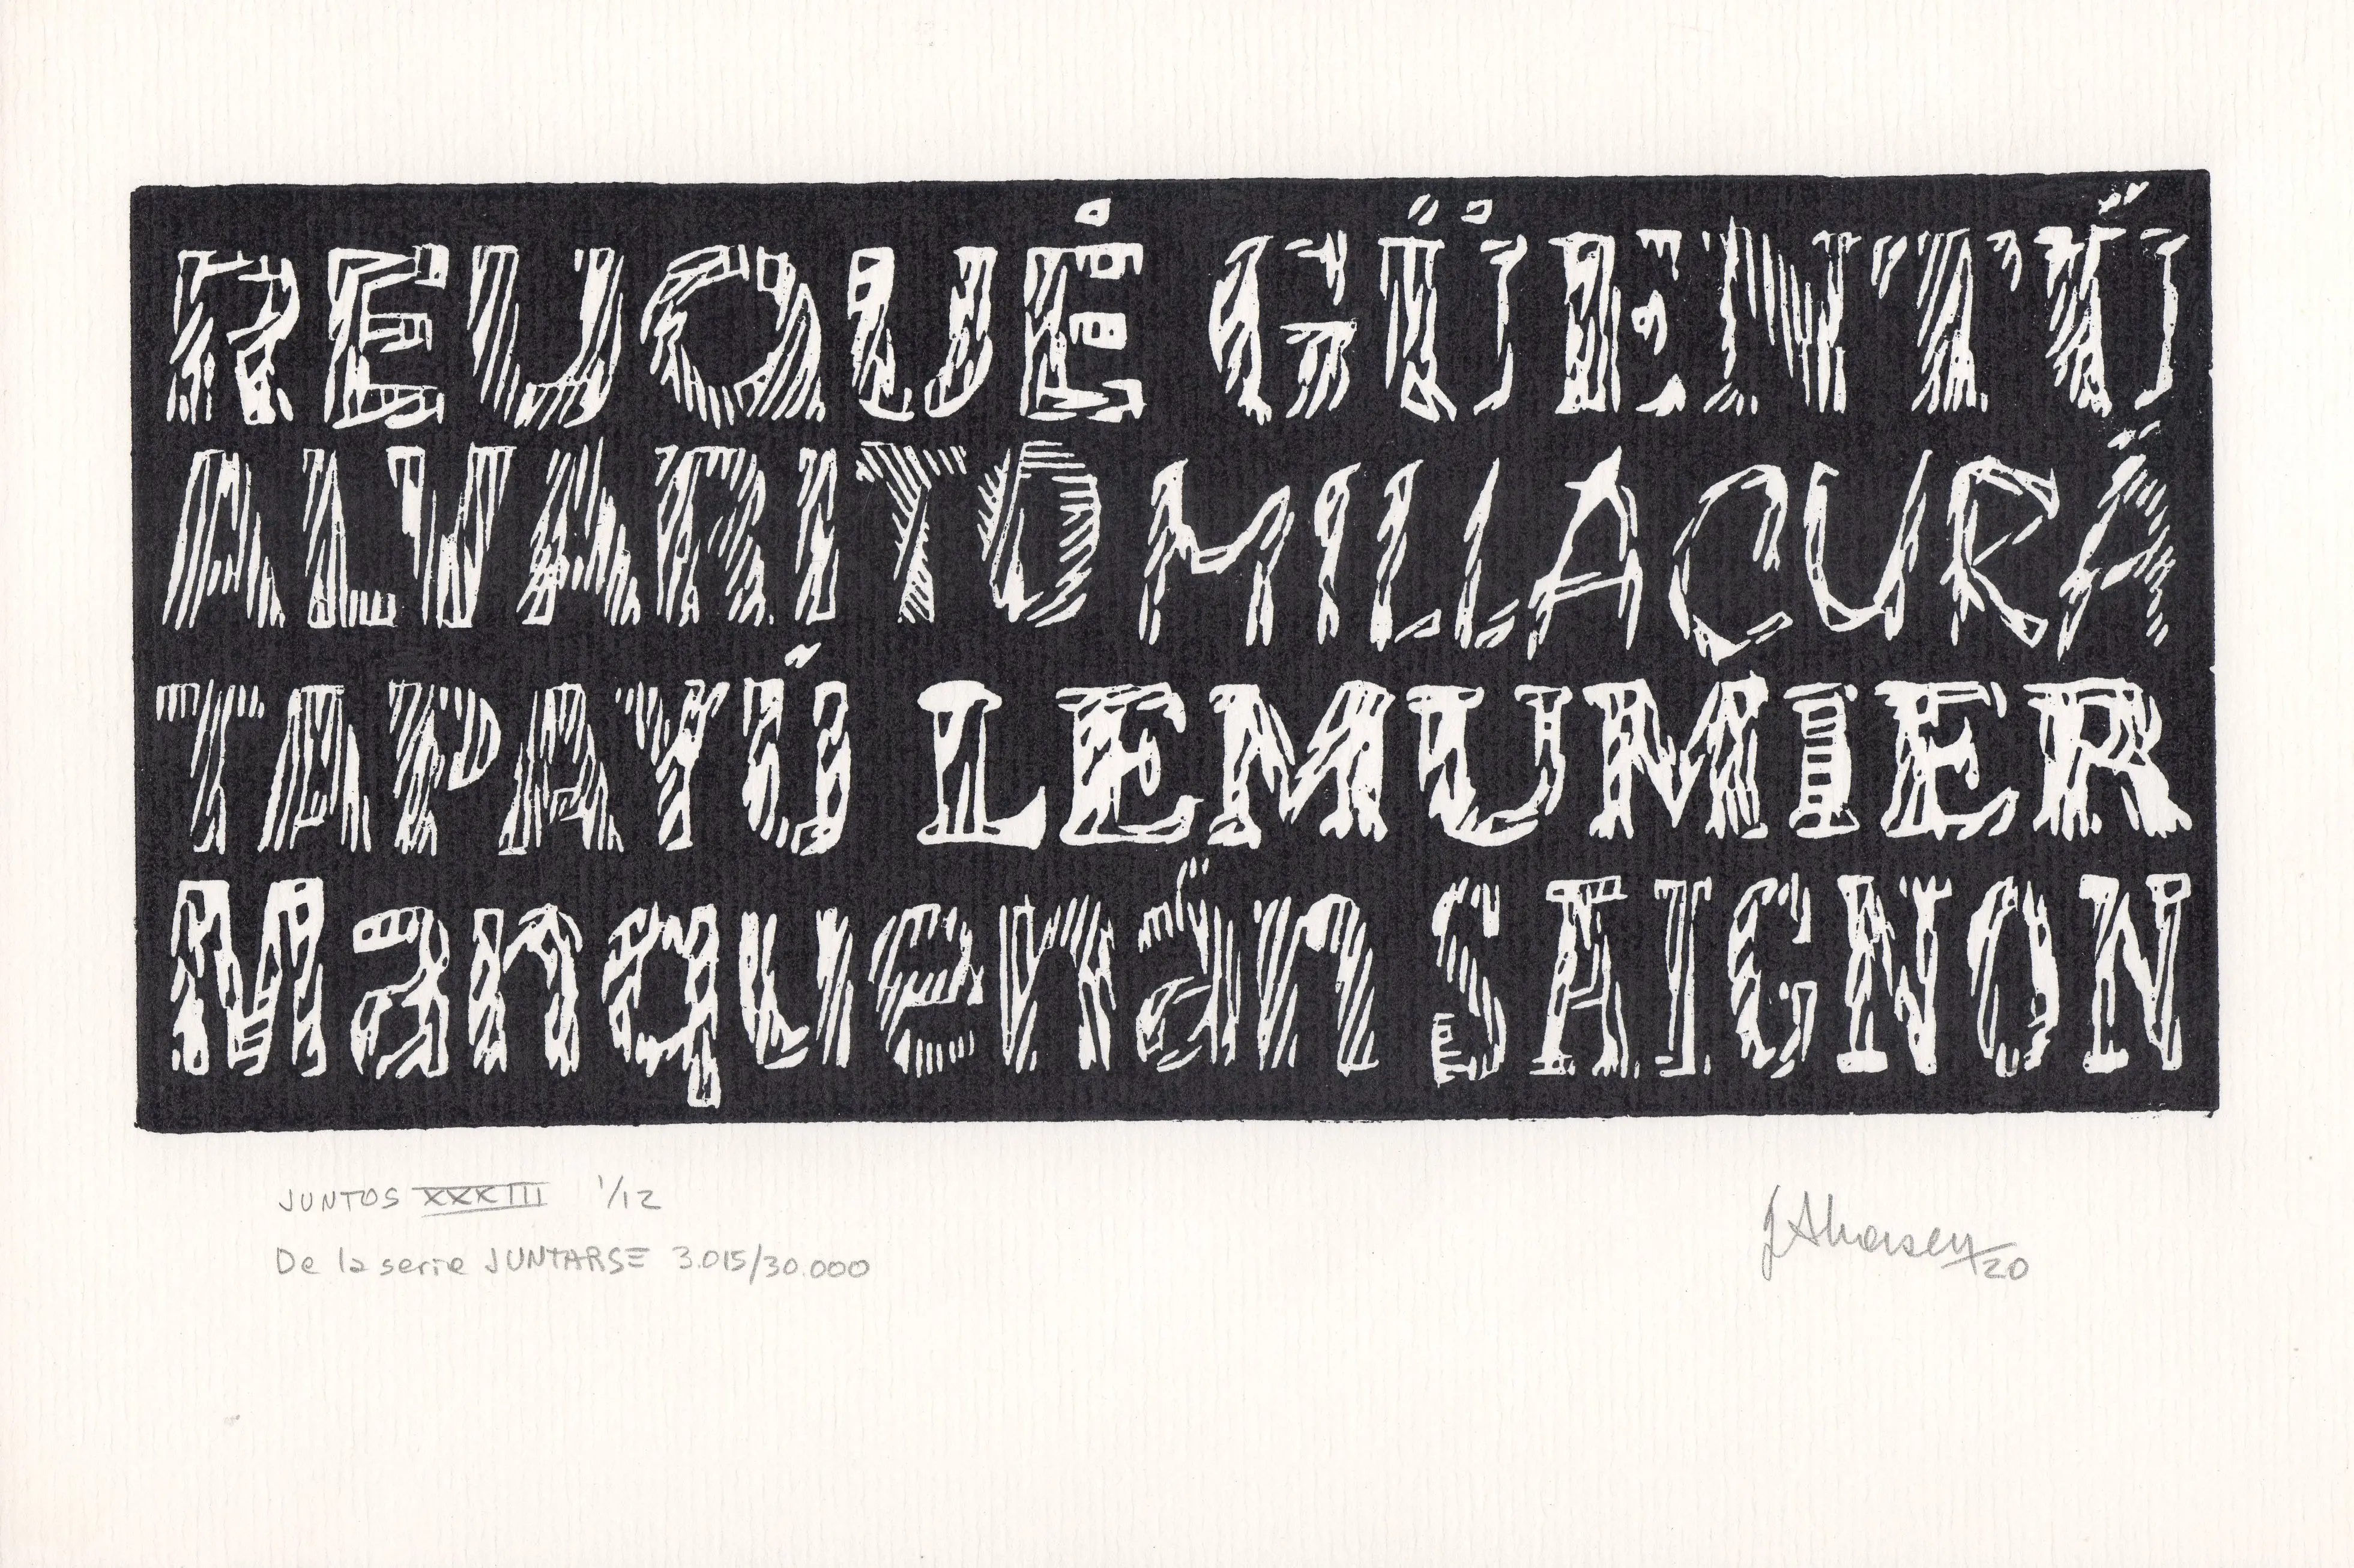 REUQUÉ GÜENTÚ
ALVARITO MILLACURÁ
TAPAYÚ LEMUMIER
Manquenán SAIGNON
JUNTOS XXXIII 1/12
De la serie JUNTARSE 3.015/30.000
20